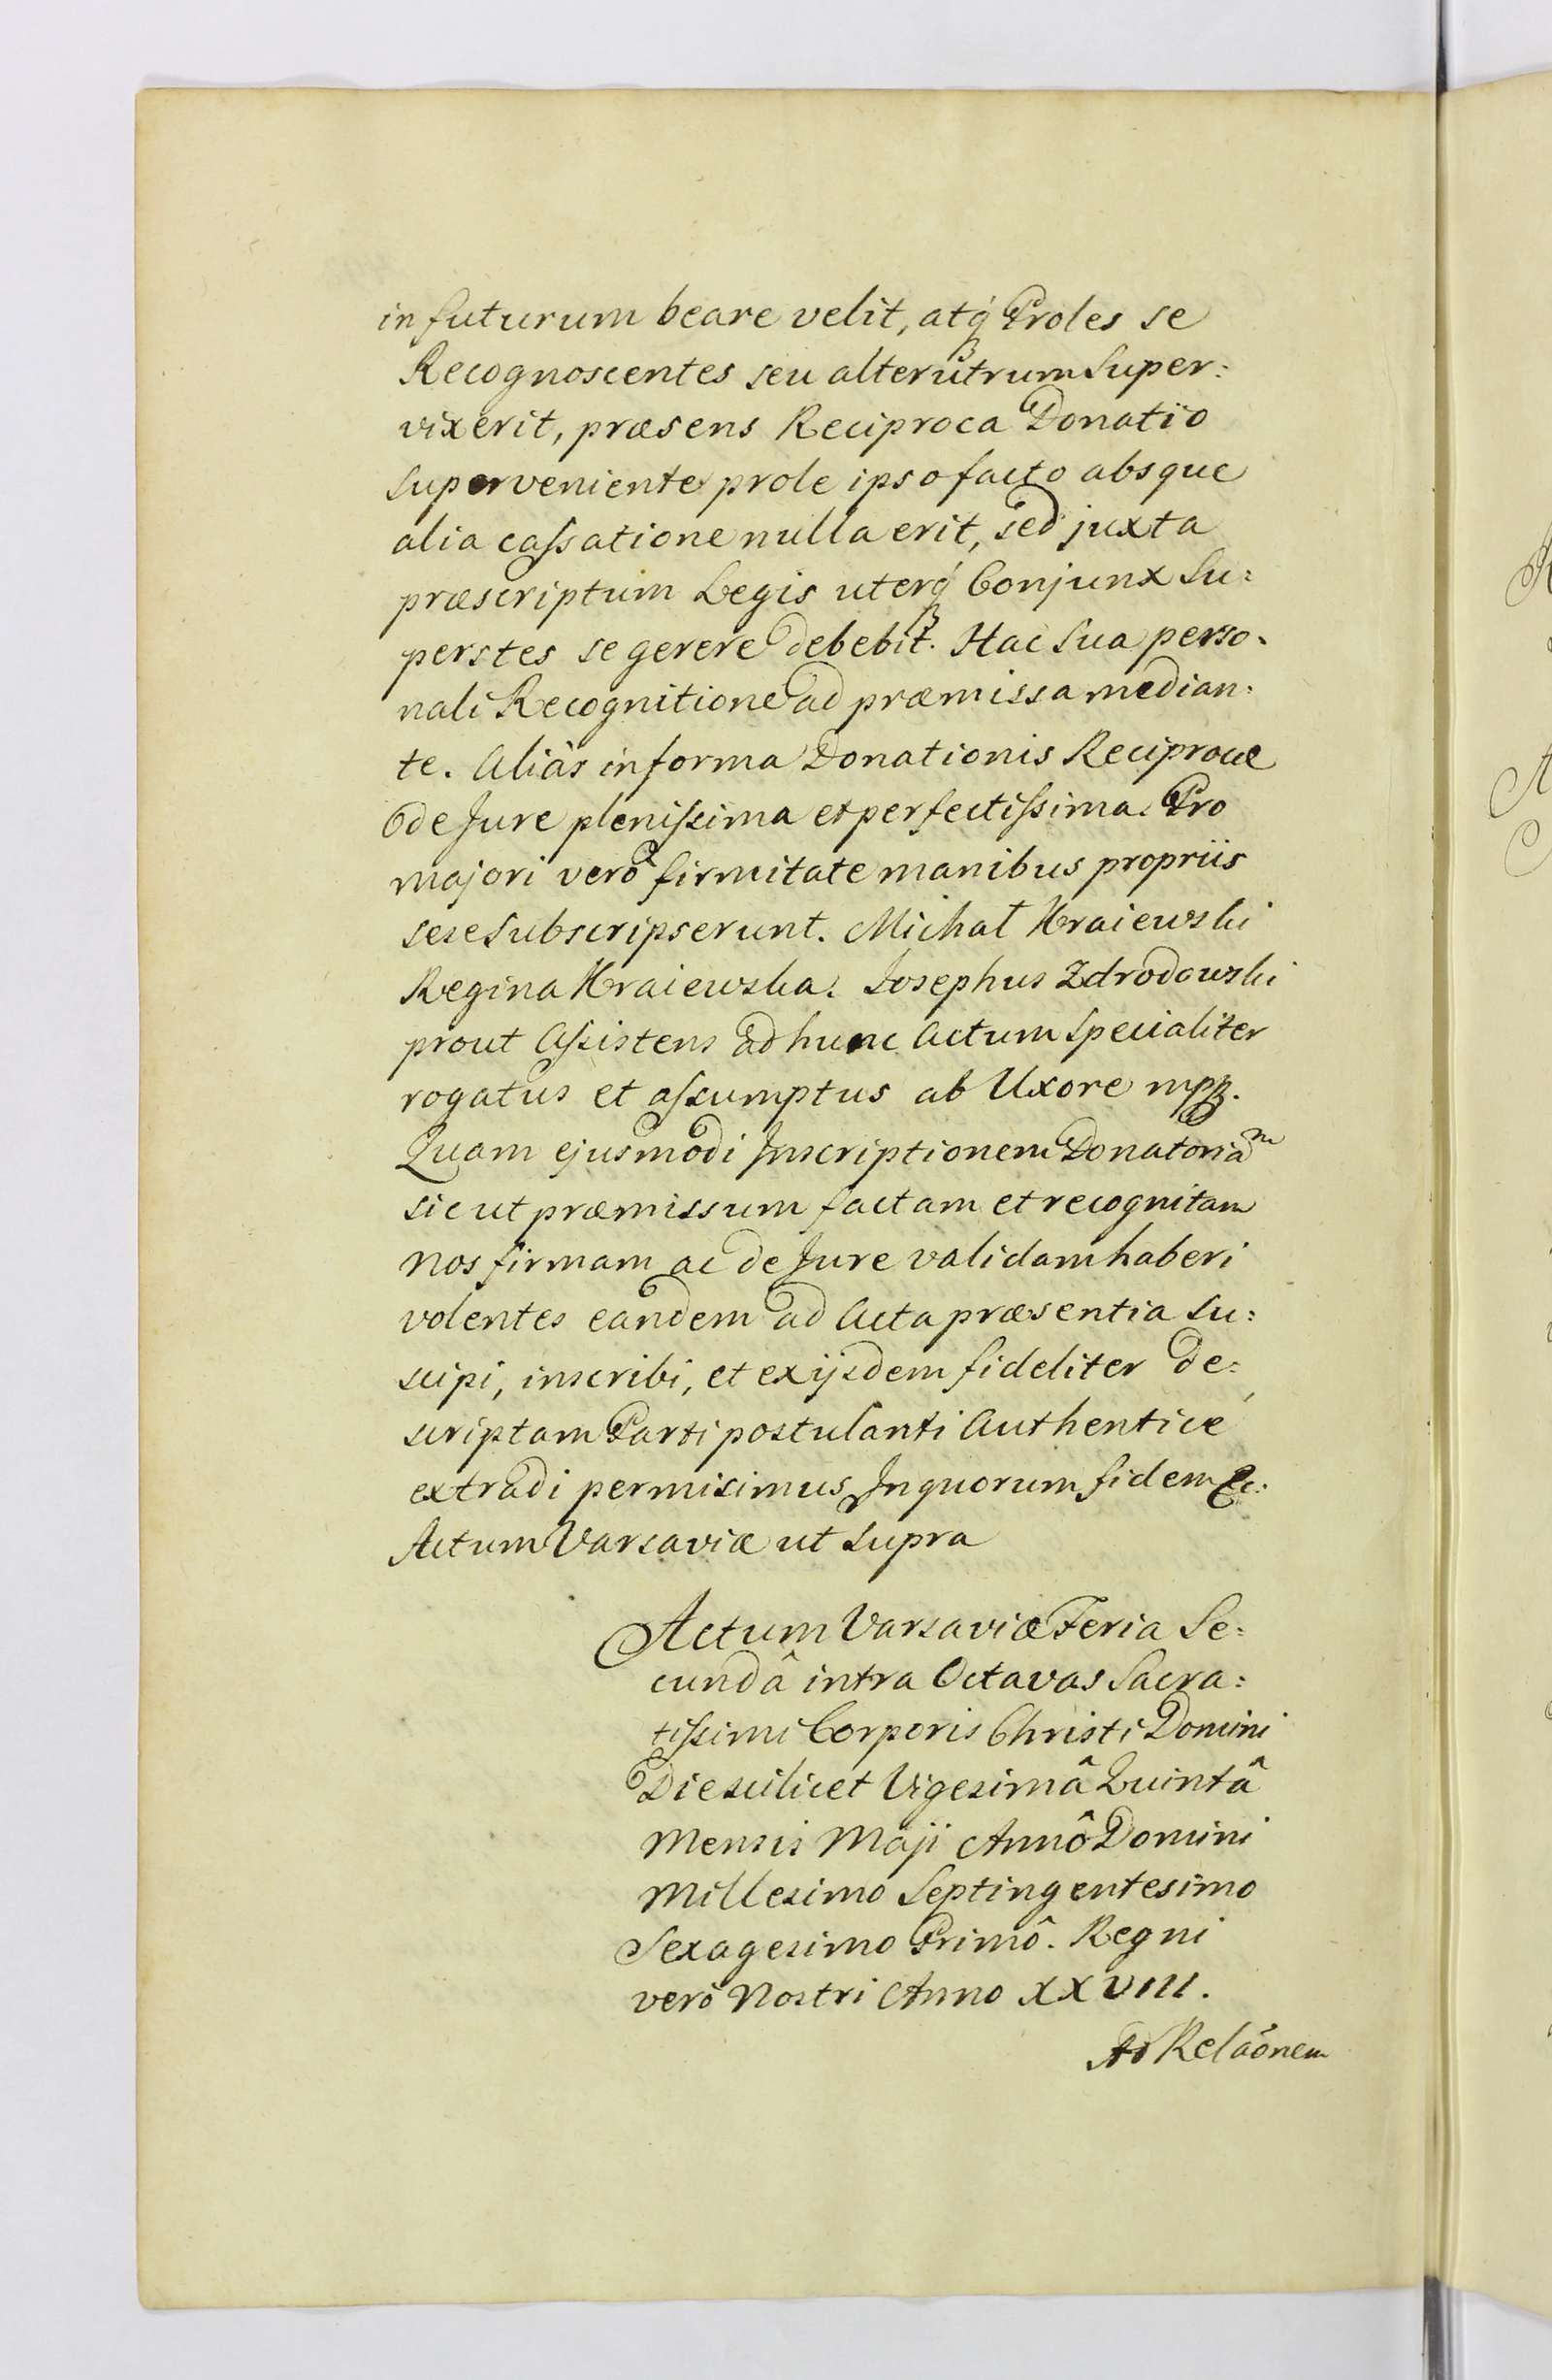 in futurum beare velit, atq́ Proles se
Recognoscentes seu alterutrum Super:
vixerit, præsens Reciproca Donatio
superveniente prole ipso facto absque
alia caſsatione nulla erit, sed juxta
præscriptum Legis uterq́ Conjunx Su:
perstes se gerere debebit. Hac sua perso-
nali Recognitione ad præmissa median:
te. Aliàs in forma Donationis Reciprocæ
de Jure pleniſsima et perfectiſsima. Pro
majori verò firmitate manibus propriis
sese subscripserunt. Michał Kraiewski
Regina Kraiewska. Josephus Zdrodowski
prout Aſsistens ad hunc Actum specialiter
rogatus et aſsumptus ab Uxore mpp.
Quam ejusmodi Inscriptionem Donatoria^m
sic ut præmissum factam et recognitam
Nos firmam ac de Jure validam haberi
volentes eandem ad Acta præsentia su:
scipi, inscribi, et exijsdem fideliter de:
scriptam Parti postulanti Authenticé
extradi permisimus In quorum fidem &c:
Actum Varsaviæ ut supra
Actum Varsaviæ Feria Se:
cundâ intra Octavas Sacra:
tiſsimi Corporis Christi Domini
Die scilicet Vigesimâ Quintâ
Mensis Maji Annô Domini
Millesimo Septingentesimo
Sexagesimo Primô. Regni
verò Nostri Anno XXVIII.
Ad Relaõnem